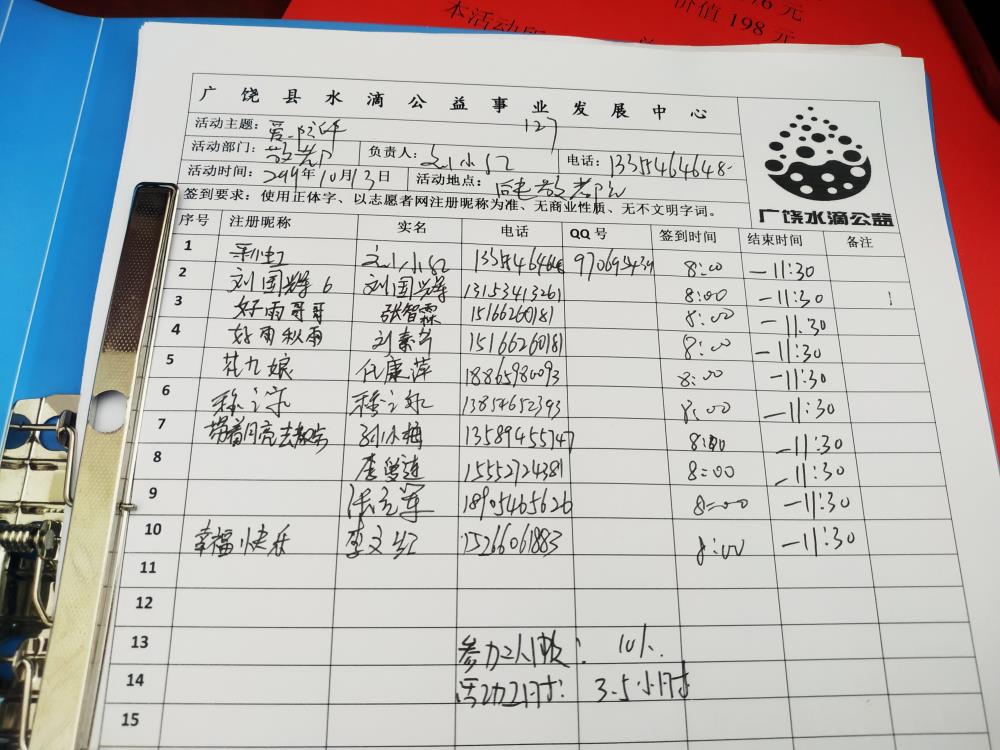 本活动
价值 198 元
广饶县水滴公益事业发展中心
活动主题: 127
活动部门: 负责人: 刘小红 电话: 1335464648
活动时间: 2019年10月13日 活动地点:
签到要求: 使用正体字、以志愿者网注册昵称为准、无商业性质、无不文明字词。
广饶水滴公益
序号 注册昵称 实名 电话 QQ 号 签到时间 结束时间 备注
1 彩虹 刘小红 8:00 -11:30
2 刘国辉6 刘国辉 13153413261 8:00 -11:30
3 好雨哥哥 张智霖 15166260181 8:00 -11.30
4 好雨秋雨 15166260181 8:00 -11:30
5 花九娘 任康萍 18865980093 8:00 -11:30
6 13854652393 8:00 -11:30
7 孙小梅 13589455747 8:00 -11:30
8 15552724381 8:00 -11:30
9 18905465626 8:00 -11:30
10 幸福快乐 李文红 15266061883 8:00 -11:30
11
12
13 参加人数: 10人.
14 活动工时: 3.5小时
15